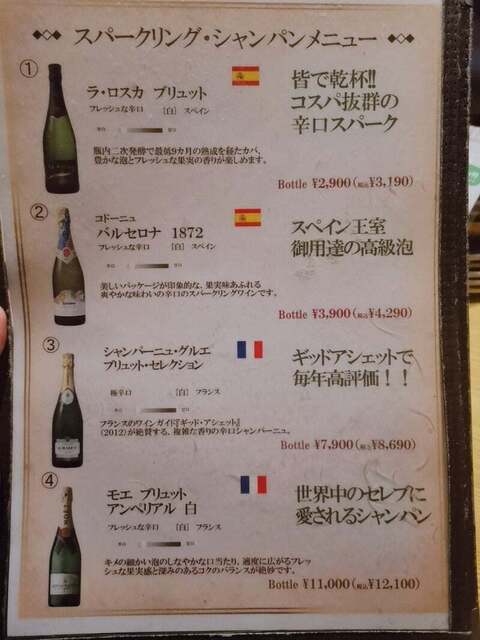 スパークリング・シャンパンメニュー
①
ラ・ロスカ ブリュット
フレッシュな辛口 [白] スペイン
辛口 甘口
瓶内二次発酵で最低9カ月の熟成を経たカバ。
豊かな泡とフレッシュな果実の香りが楽しめます。
皆で乾杯!!
コスパ抜群の
辛口スパーク
Bottle ¥2,900(税込¥3,190)
②
コドーニュ
バルセロナ 1872
フレッシュな辛口 [白] スペイン
辛口 甘口
美しいパッケージが印象的な、果実味あふれる
爽やかな味わいの辛口のスパークリングワインです。
スペイン王室
御用達の高級泡
Bottle ¥3,900(税込¥4,290)
③
シャンパーニュ・グルエ
ブリュット・セレクション
極辛口 [白] フランス
辛口 甘口
フランスのワインガイド『ギッド・アシェット』
(2012)が絶賛する、複雑な香りの辛口シャンパーニュ。
ギッドアシェットで
毎年高評価!!
Bottle ¥7,900(税込¥8,690)
④
モエ ブリュット
アンペリアル 白
フレッシュな辛口 [白] フランス
辛口 甘口
キメの細かい泡のしなやかな口当たり、適度に広がるフレッ
シュな果実感と深みのあるコクのバランスが絶妙です。
世界中のセレブに
愛されるシャンパン
Bottle ¥11,000(税込¥12,100)